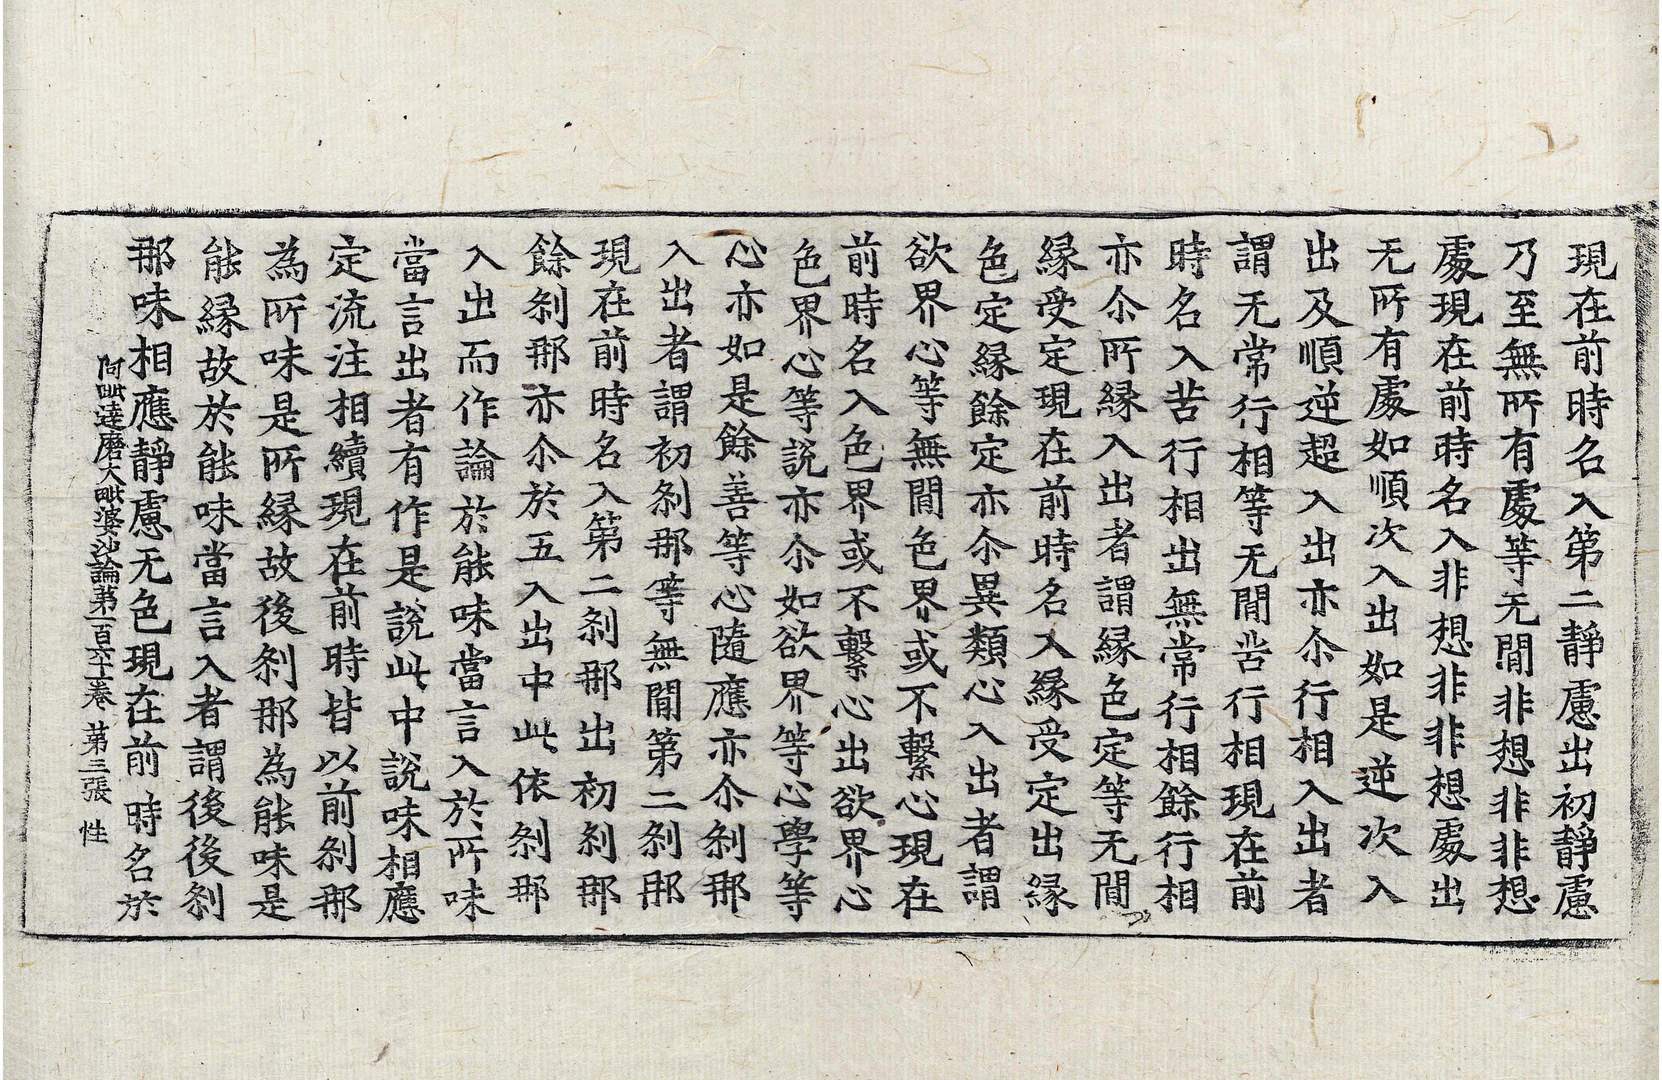 現在前時名入第二靜慮出初靜慮
乃至無所有處等无間非想非非想
處現在前時名入非想非非想處出
无所有處如順次入出如是逆次入
出及順逆超入出亦尒行相入出者
謂无常行相等无間苦行相現在前
時名入苦行相出無常行相餘行相
亦尒所縁入出者謂縁色定等无間
縁受定現在前時名入縁受定出縁
色定縁餘定亦尒異類心入出者謂
欲界心等無間色界或不繫心現在
前時名入色界或不繫心出欲界心
色界心等說亦尒如欲界等心學等
心亦如是餘善等心隨應亦尒刹那
入出者謂初刹那等無間第二刹那
現在前時名入第二刹那出初刹那
餘刹那亦尒於五入出中此依刹那
入出而作論於能味當言入於所味
當言出者有作是說此中說味相應
定流注相續現在前時皆以前刹那
為所味是所縁故後刹那為能味是
能縁故於能味當言入者謂後後刹
那味相應靜慮无色現在前時名於
阿毗達磨大毗婆沙論第一百六十二卷 第三張 性